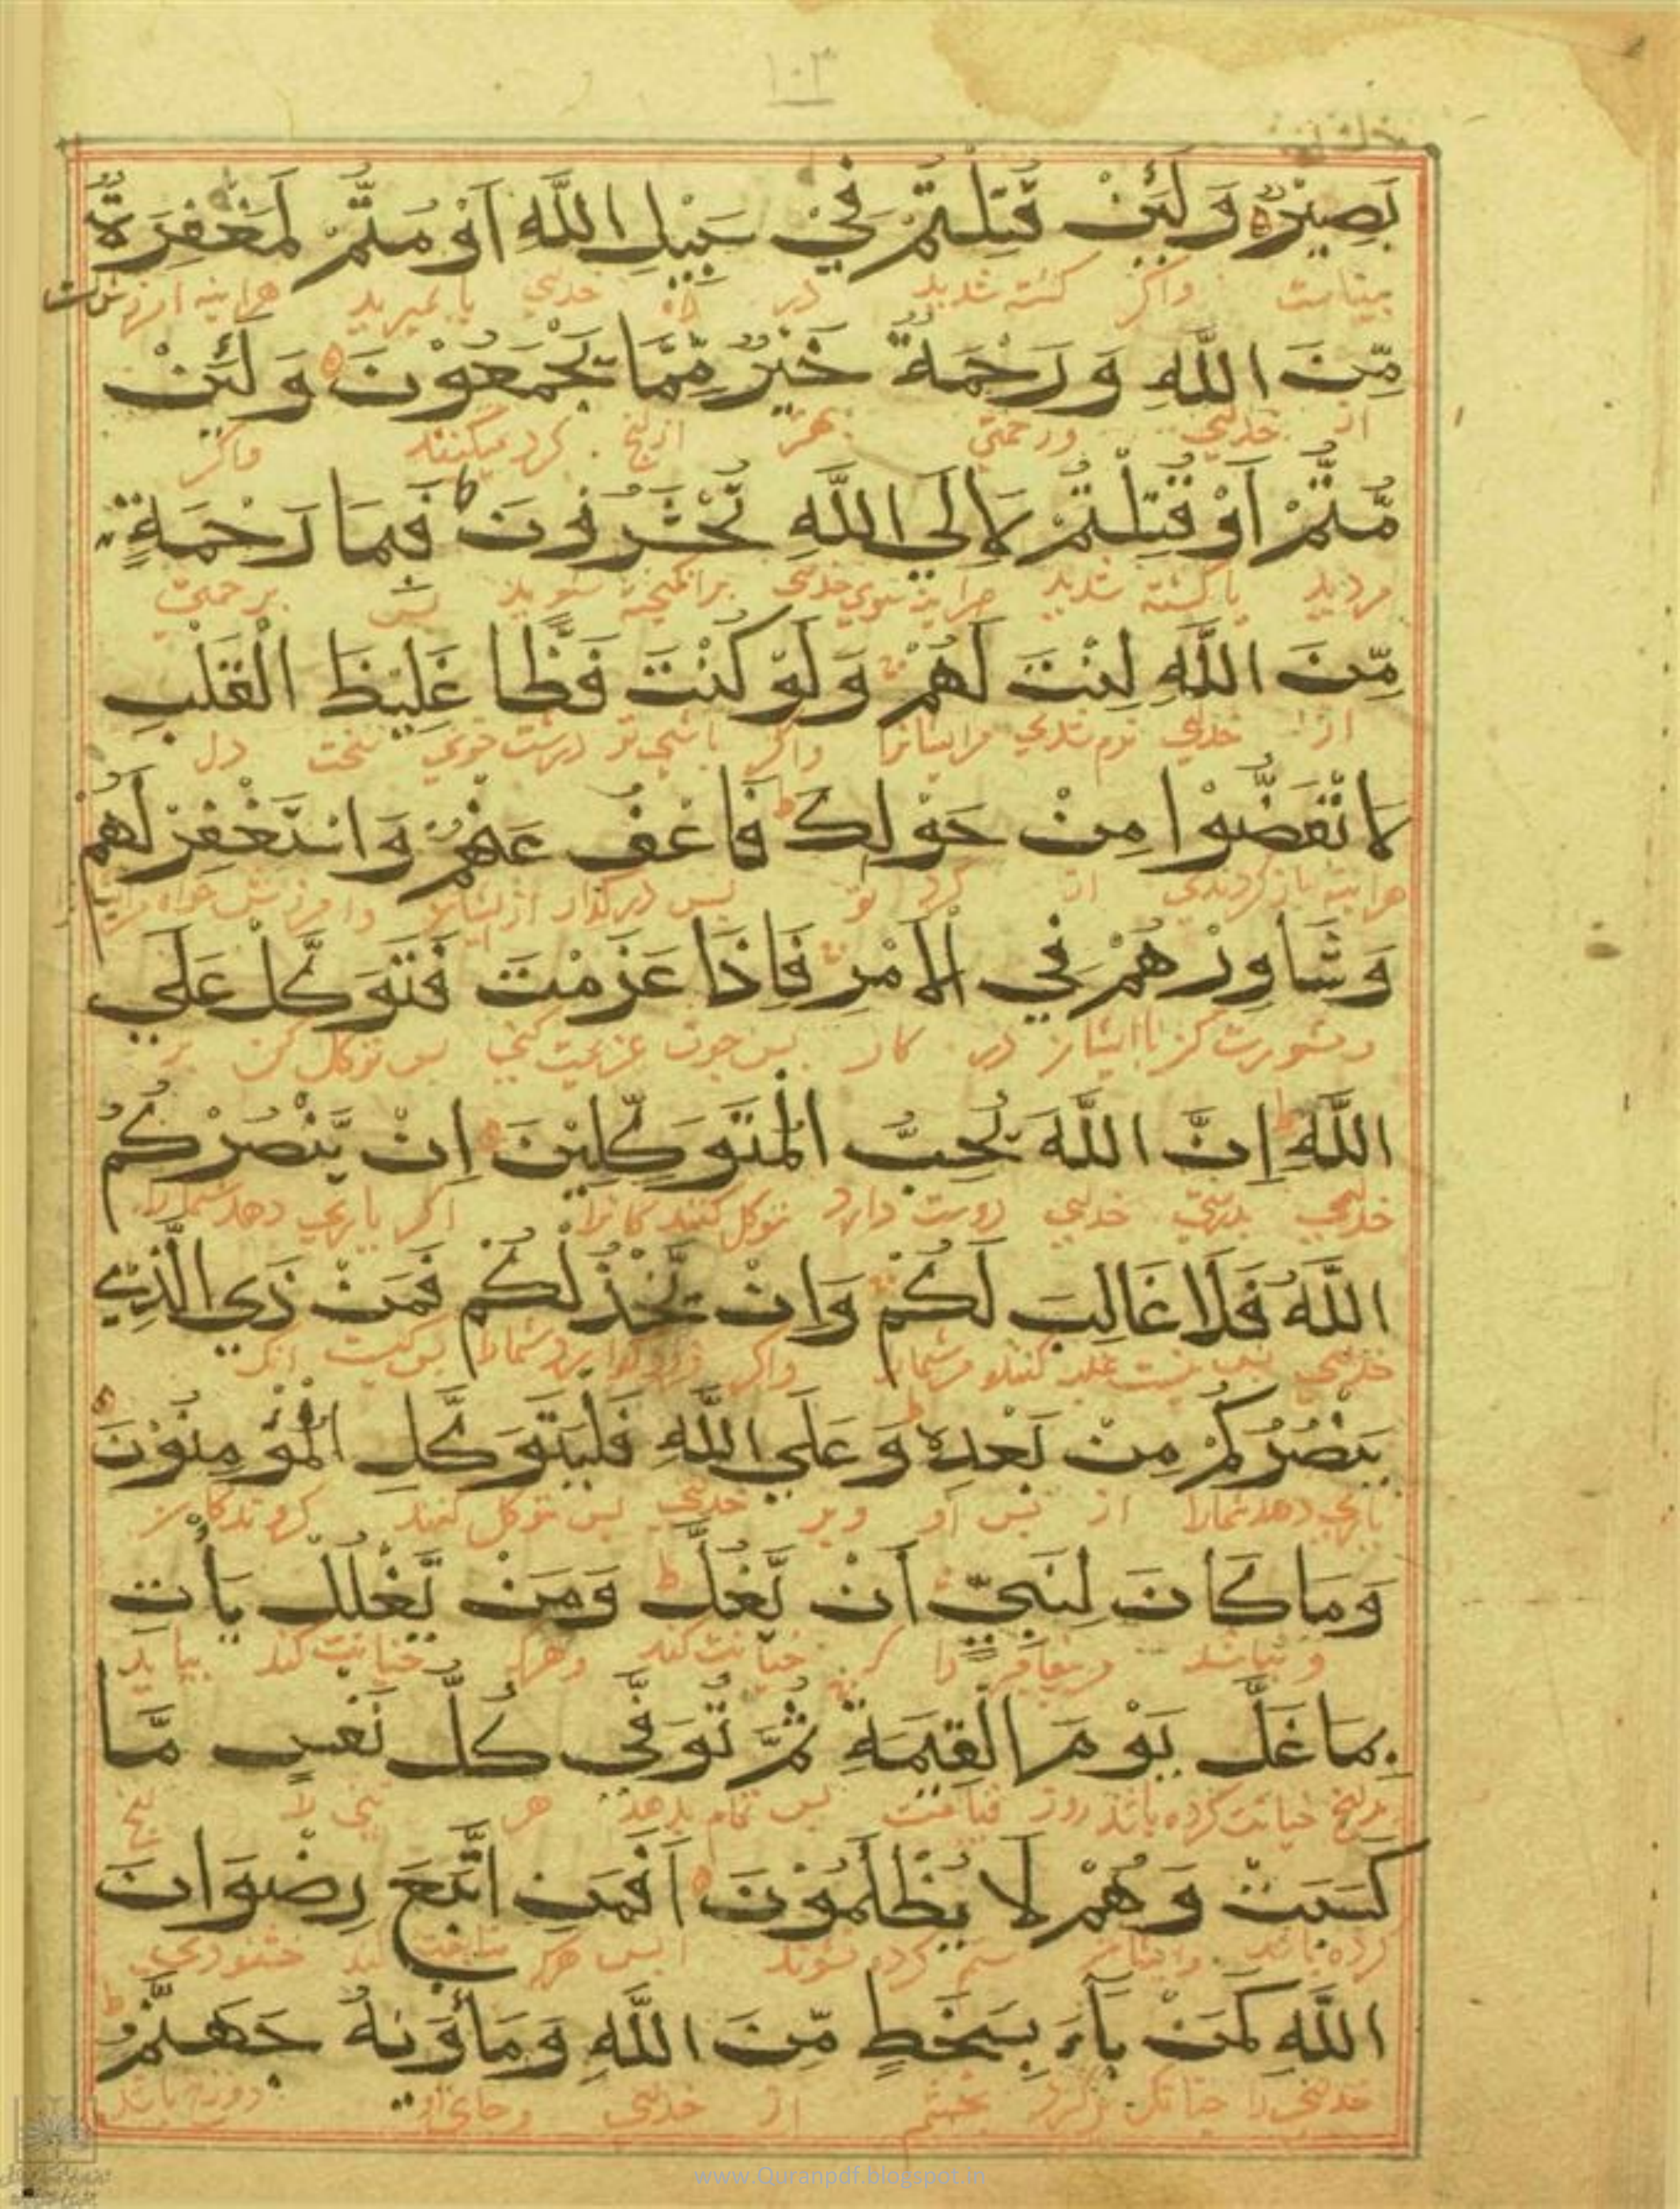 ١٠٣
بَصِيْرٌ وَلَئِنْ قُتِلْتُمْ فِيْ سَبِيْلِ اللَّهِ اَوْ مُتُّمْ لَمَغْفِرَةٌ
بیناست واگر کشته شدید در راه خدای یا بمیرید هراینه امرزشت
مِّنَ اللَّهِ وَرَحْمَةٌ خَيْرٌ مِّمَّا يَجْمَعُوْنَ وَلَئِنْ
از خدای ورحمتی بهتر ازانچ کرد میکنند واگر
مُّتُّمْ اَوْ قُتِلْتُمْ لَاِلَي اللَّهِ تُحْشَرُوْنَ فَبِمَا رَحْمَةٍ
مردید یا کشته شدید هراینه سوی خدای برانکیخته شوید پس برحمتی
مِّنَ اللَّهِ لِنْتَ لَهُمْ وَلَوْ كُنْتَ فَظًّا غَلِيْظَ الْقَلْبِ
از خدای نرم شدی مرایشانرا واگر باشی تو درشت خوی سخت دل
لَانْفَضُّوْا مِنْ حَوْلِكَ فَاعْفُ عَنْهُمْ وَاسْتَغْفِرْ لَهُمْ
هراینه باز کردندی از کرد تو پس درگذار از ایشان وامرزش خواه
وَشَاوِرْهُمْ فِي الْاَمْرِ فَاِذَا عَزَمْتَ فَتَوَكَّلْ عَلَي
ومشورت کن باایشان در کار پس چون عزیمت کنی پس توکل کن بر
اللَّهِ اِنَّ اللَّهَ يُحِبُّ الْمُتَوَكِّلِيْنَ اِنْ يَّنْصُرْكُمُ
خدای بدرستی خدای دوست دارد توکل کنندکانرا اکر یاری دهد شمارا
اللَّهُ فَلَا غَالِبَ لَكُمْ وَاِنْ يَّخْذُلْكُمْ فَمَنْ ذَي الَّذِيْ
خدای پس نیست غلبه کننده مرشمارا واکر شمارا پس کیست انک
يَنْصُرُكُمْ مِنْ بَعْدِهٖ وَعَلَي اللَّهِ فَلْيَتَوَكَّلِ الْمُؤْمِنُوْنَ
یاری دهد شمارا از پس او وبر خدای پس توکل کنند
وَمَا كَانَ لِنَبِيٍّ اَنْ يَّغُلَّ وَمَنْ يَّغْلُلْ يَأْتِ
ونباشد را که خیانت کند وهرکه خیانت کند بیاید
بِمَا غَلَّ يَوْمَ الْقِيٰمَةِ ثُمَّ تُوَفّٰي كُلُّ نَفْسٍ مَّا
خیانت کرده باشد روز قیامت پس تمام بدهد هر تنی را
كَسَبَتْ وَهُمْ لَا يُظْلَمُوْنَ اَفَمَنِ اتَّبَعَ رِضْوَانَ
کرده باشد وایشان ستم کرده نشوند ایس هرکه خشنودی
اللَّهِ كَمَنْ بَآءَ بِسَخَطٍ مِّنَ اللَّهِ وَمَأْوٰىهُ جَهَنَّمُ
خدای را چنانک بخشم از خدای وجای او دوزخ باشد
www.Quranpdf.blogspot.in